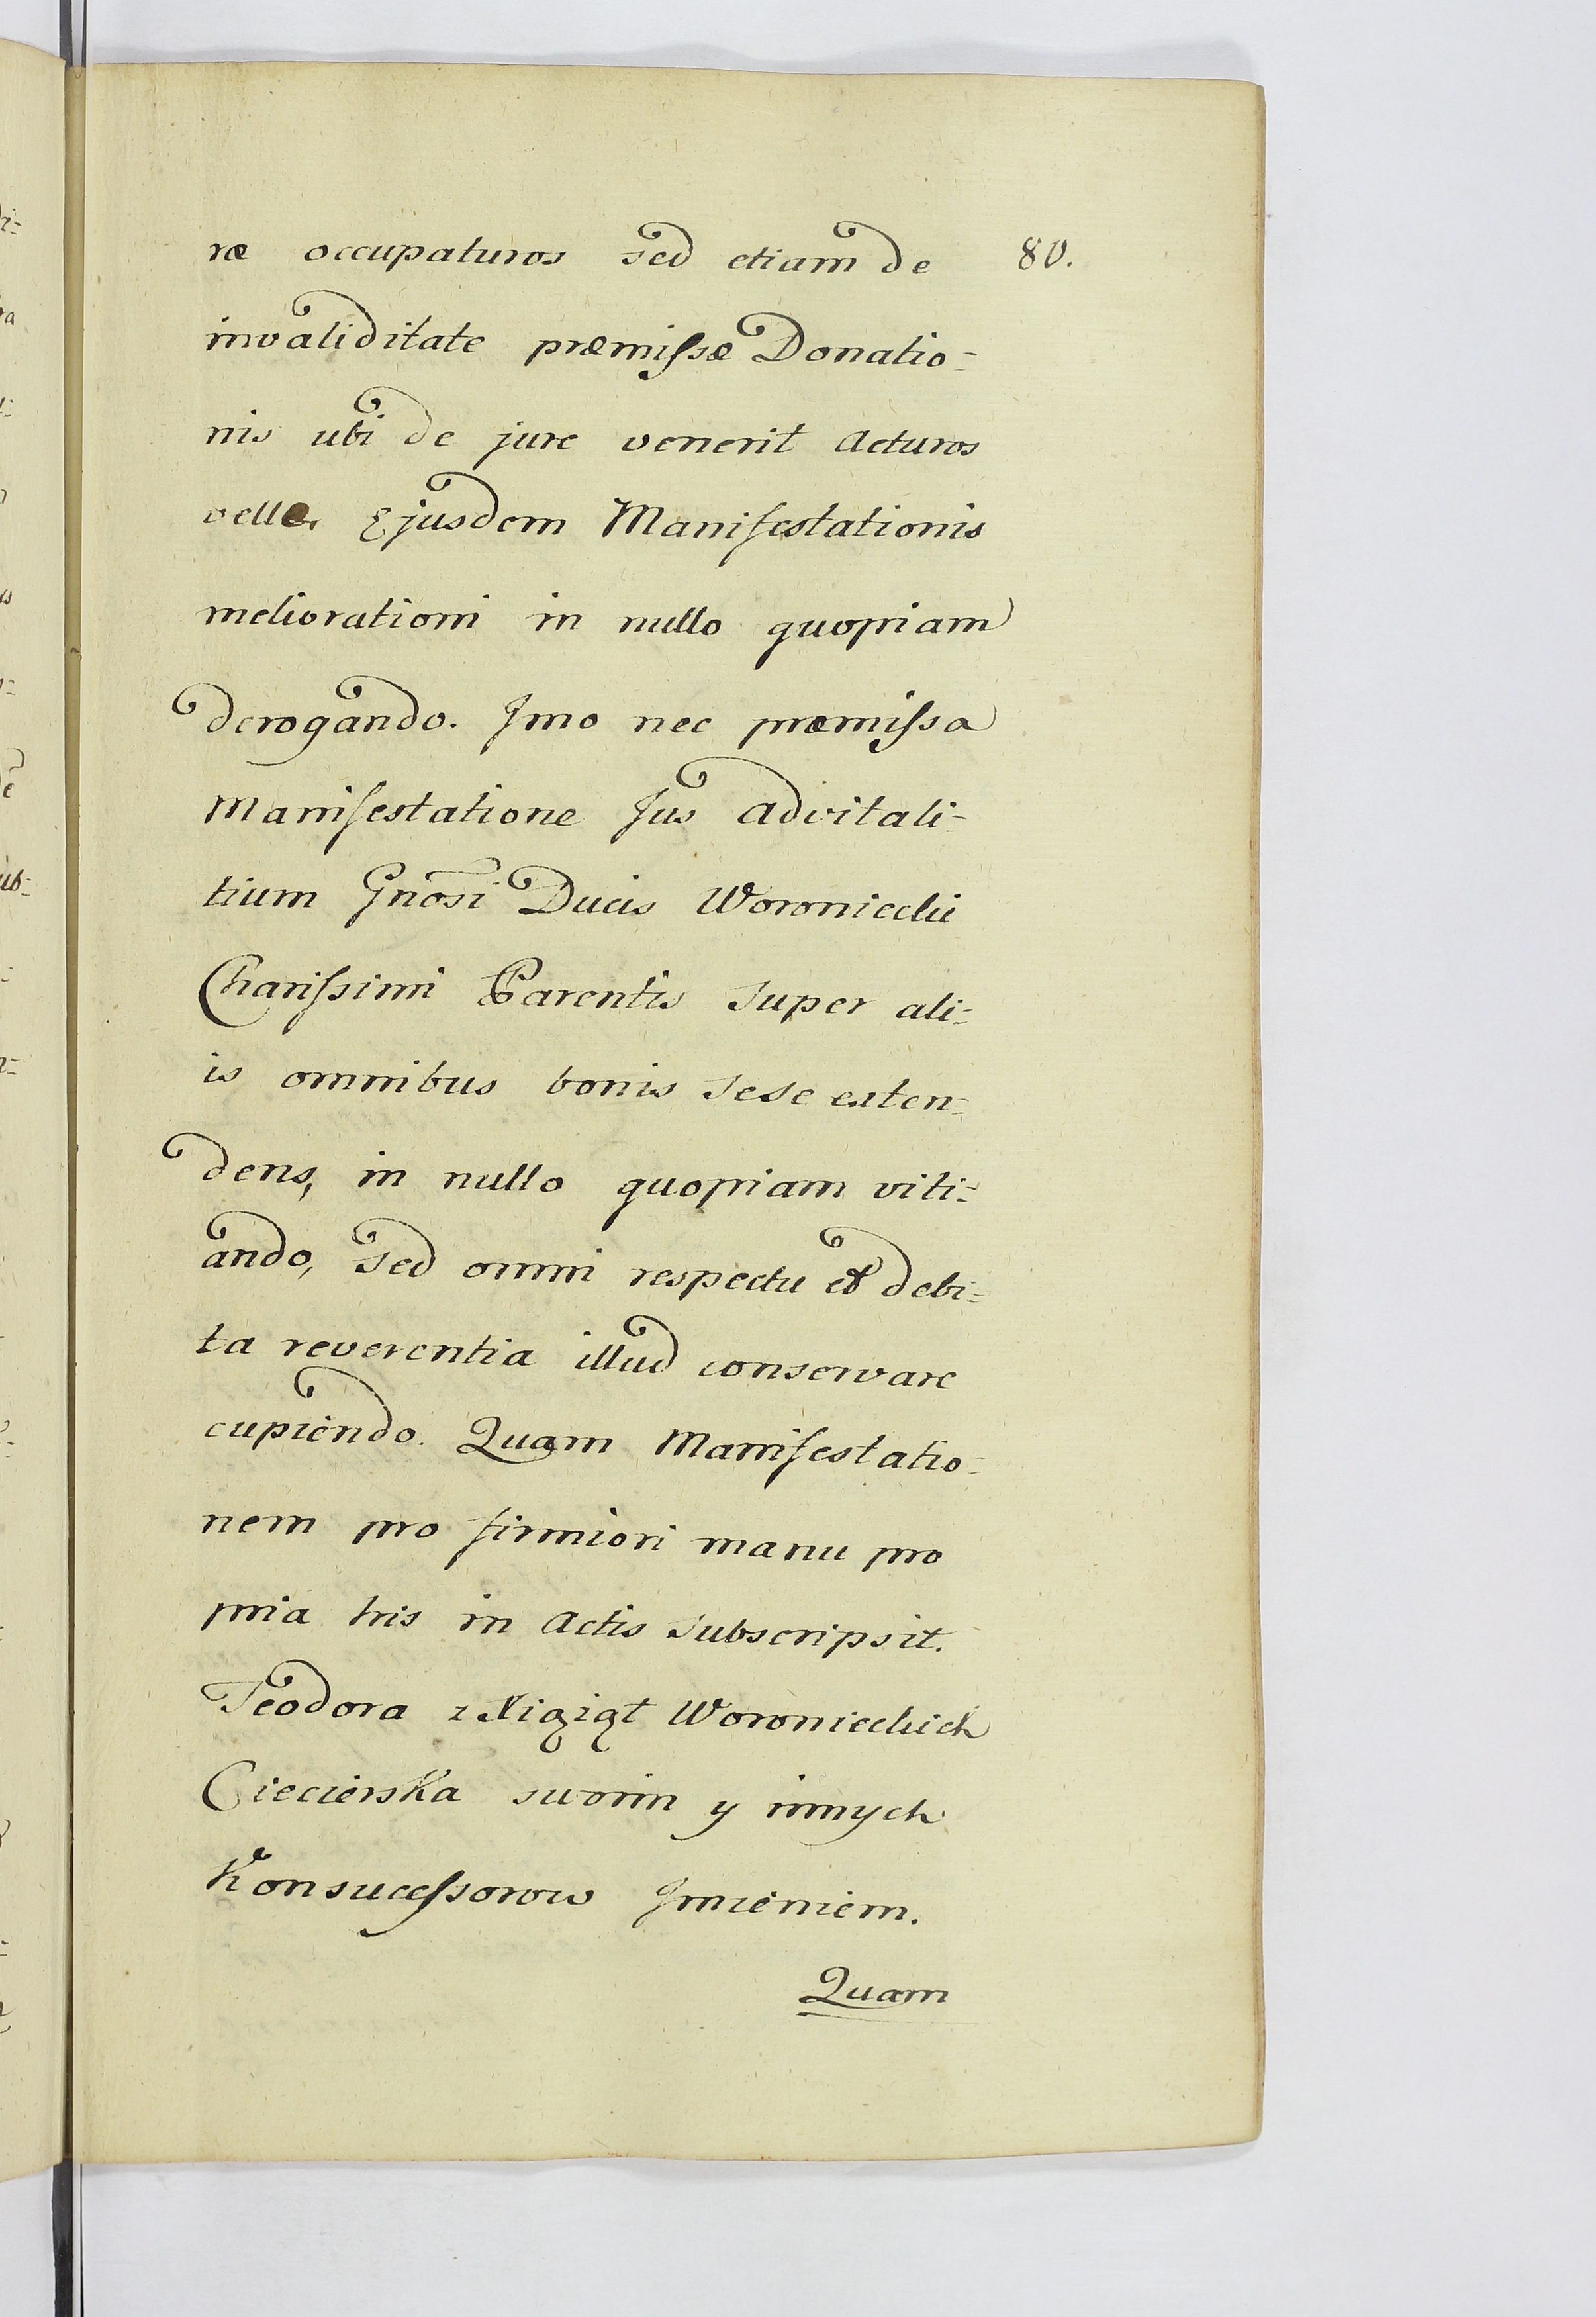 ræ occupaturos sed etiam de 80.
invaliditate præmissæ Donatio=
nis ubi de jure venerit acturos
velle, Ejusdem Manifestationis
meliorationi in nullo quopiam
derogando. Imo nec præmissa
Manifestatione Jus advitali=
tium Gnosi Ducis Woroniecki
Charissimi Parentis super ali=
is omnibus bonis sese exten=
dens, in nullo quopiam viti=
ando, sed omni respectu et debi=
ta reverentia illud conservare
cupiendo. Quam Manifestatio=
nem pro firmiori manu pro
pria his in Actis subscripsit.
Teodora z Xiąząt Woronieckich
Ciecierska swoim y innych
Konsucessorow Jmieniem.
Quam